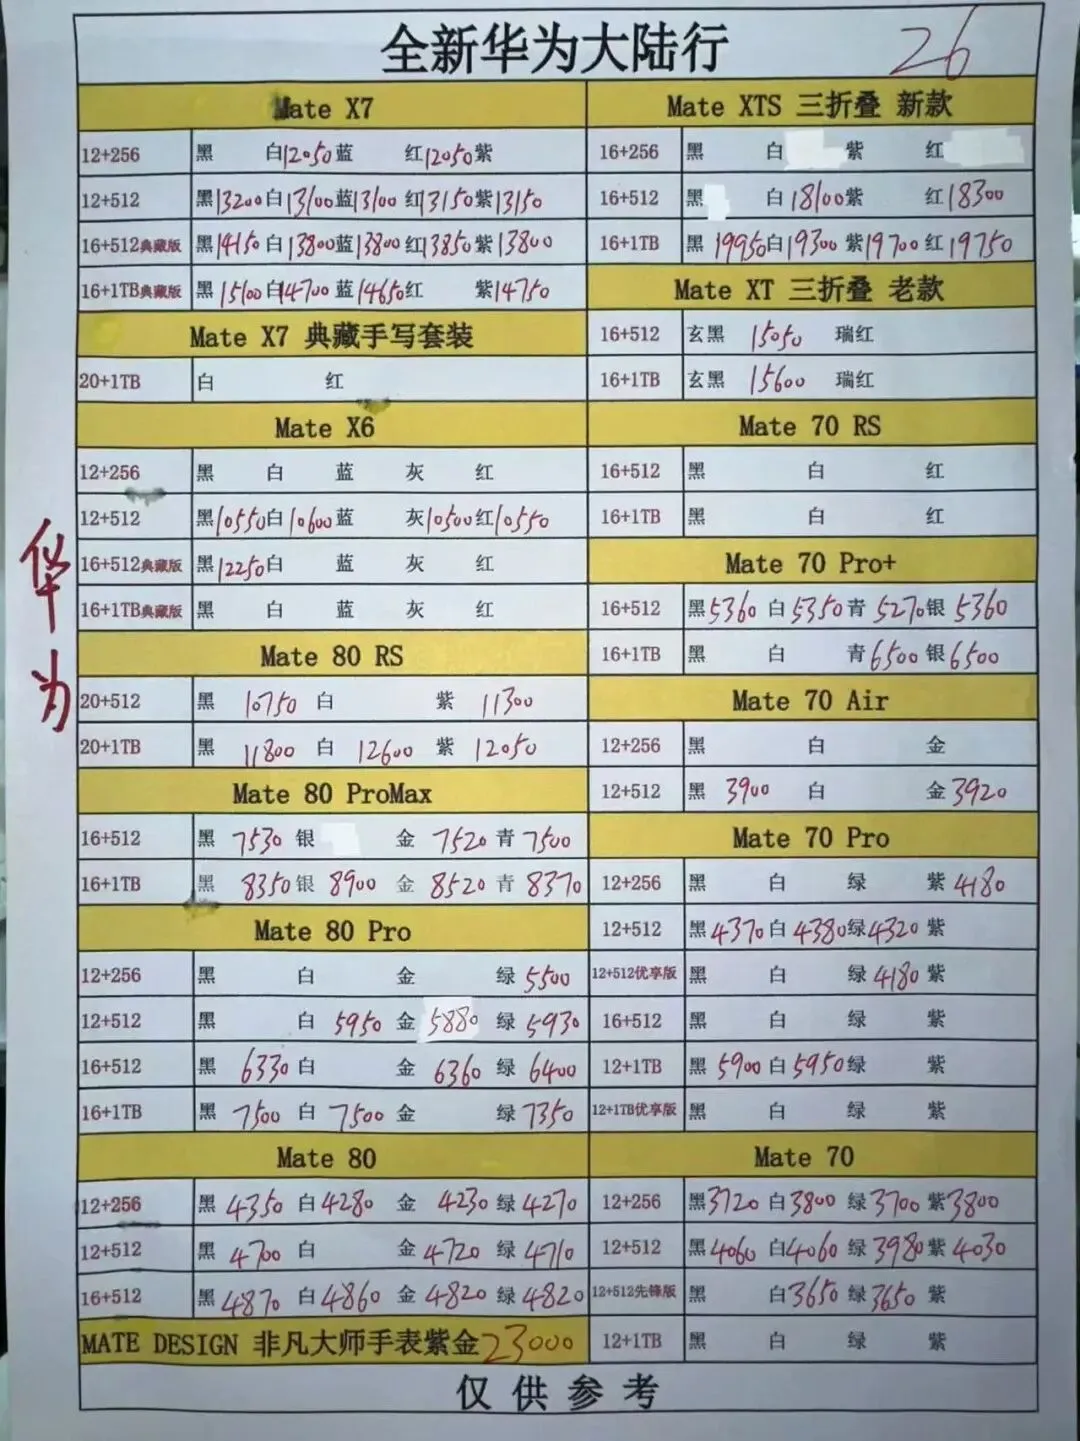 全新华为大陆行 26
华为
Mate X7
12+256 黑 白12050 蓝 红12050 紫
12+512 黑13200 白13100 蓝13100 红13150 紫13150
16+512典藏版 黑14150 白13800 蓝13800 红13850 紫13800
16+1TB典藏版 黑15100 白14700 蓝14650 红 紫14750
Mate X7 典藏手写套装
20+1TB 白 红
Mate X6
12+256 黑 白 蓝 灰 红
12+512 黑10550 白10600 蓝 灰10500 红10550
16+512典藏版 黑12250 白 蓝 灰 红
16+1TB典藏版 黑 白 蓝 灰 红
Mate 80 RS
20+512 黑 10750 白 紫 11300
20+1TB 黑 11800 白 12600 紫 12050
Mate 80 ProMax
16+512 黑 7530 银 金 7520 青 7500
16+1TB 黑 8350 银 8900 金 8520 青 8370
Mate 80 Pro
12+256 黑 白 金 绿 5500
12+512 黑 白 5950 金 5880 绿 5930
16+512 黑 6330 白 金 6360 绿 6400
16+1TB 黑 7500 白 7500 金 绿 7350
Mate 80
12+256 黑 4350 白 4280 金 4230 绿 4270
12+512 黑 4700 白 金 4720 绿 4710
16+512 黑 4870 白 4860 金 4820 绿 4820
MATE DESIGN 非凡大师手表紫金 23000
Mate XTS 三折叠 新款
16+256 黑 白 紫 红
16+512 黑 白 18100 紫 红 18300
16+1TB 黑 19950 白 19300 紫 19700 红 19750
Mate XT 三折叠 老款
16+512 玄黑 15050 瑞红
16+1TB 玄黑 15600 瑞红
Mate 70 RS
16+512 黑 白 红
16+1TB 黑 白 红
Mate 70 Pro+
16+512 黑 5360 白 5350 青 5270 银 5360
16+1TB 黑 白 青 6500 银 6500
Mate 70 Air
12+256 黑 白 金
12+512 黑 3900 白 金 3920
Mate 70 Pro
12+256 黑 白 绿 紫 4180
12+512 黑 4370 白 4380 绿 4320 紫
12+512优享版 黑 白 绿 4180 紫
16+512 黑 白 绿 紫
12+1TB 黑 5900 白 5950 绿 紫
12+1TB优享版 黑 白 绿 紫
Mate 70
12+256 黑 3720 白 3800 绿 3700 紫 3800
12+512 黑 4060 白 4060 绿 3980 紫 4030
12+512先锋版 黑 白 3650 绿 3650 紫
12+1TB 黑 白 绿 紫
仅供参考